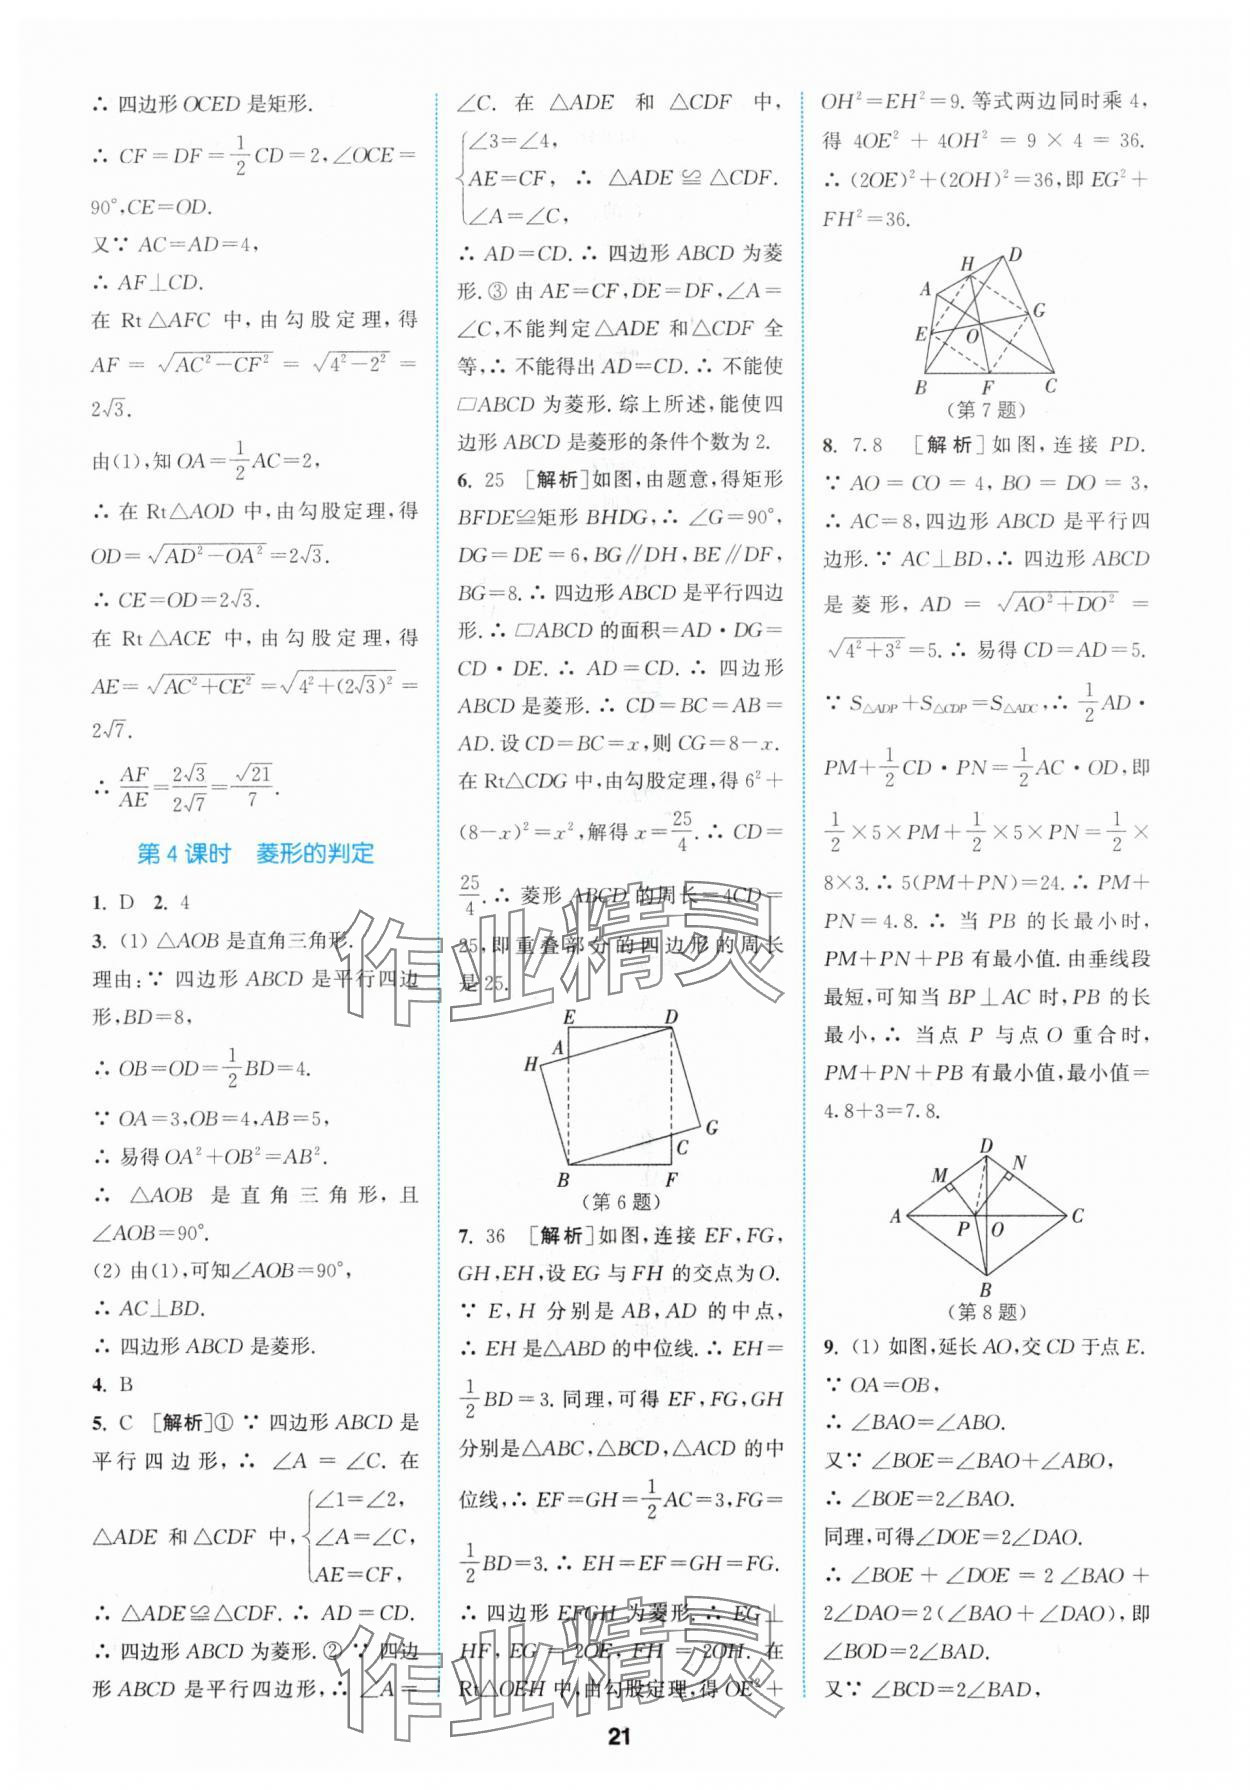 ∴ 四边形OCED是矩形.
∴ CF=DF=1/2CD=2,∠OCE=
90°,CE=OD.
又∵ AC=AD=4,
∴ AF⊥CD.
在 Rt△AFC 中,由勾股定理,得
AF = √(AC²-CF²) = √(4²-2²) =
2√3.
由(1),知OA=1/2AC=2,
∴ 在Rt△AOD中,由勾股定理,得
OD=√(AD²-OA²)=2√3.
∴ CE=OD=2√3.
在 Rt△ACE 中,由勾股定理,得
AE=√(AC²+CE²)=√(4²+(2√3)²)=
2√7.
∴ AF/AE=2√3/2√7=√21/7.
第4课时 菱形的判定
1. D 2. 4
3. (1) △AOB是直角三角形.
理由:∵ 四边形ABCD是平行四边
形,BD=8,
∴ OB=OD=1/2BD=4.
∵ OA=3,OB=4,AB=5,
∴ 易得OA²+OB²=AB².
∴ △AOB 是直角三角形,且
∠AOB=90°.
(2) 由(1),可知∠AOB=90°,
∴ AC⊥BD.
∴ 四边形ABCD是菱形.
4. B
5. C [解析]① ∵ 四边形ABCD是
平行四边形,∴ ∠A=∠C. 在
△ADE和△CDF中,{∠1=∠2,
∠A=∠C,
AE=CF,
∴ △ADE≌△CDF. ∴ AD=CD.
∴ 四边形ABCD为菱形.② ∵ 四边
形ABCD是平行四边形,∴ ∠A=
∠C. 在 △ADE 和 △CDF 中,
{∠3=∠4,
AE=CF, ∴ △ADE ≌ △CDF.
∠A=∠C,
∴ AD=CD. ∴ 四边形ABCD为菱
形.③ 由AE=CF,DE=DF,∠A=
∠C,不能判定△ADE和△CDF全
等,∴ 不能得出AD=CD. ∴ 不能使
□ABCD为菱形.综上所述,能使四
边形ABCD是菱形的条件个数为2.
6. 25 [解析]如图,由题意,得矩形
BFDE≌矩形BHDG,∴ ∠G=90°,
DG=DE=6,BG∥DH,BE∥DF,
BG=8. ∴ 四边形ABCD是平行四边
形.∴ □ABCD的面积=AD·DG=
CD·DE. ∴ AD=CD. ∴ 四边形
ABCD是菱形.∴ CD=BC=AB=
AD.设CD=BC=x,则CG=8-x.
在Rt△CDG中,由勾股定理,得6²+
(8-x)²=x²,解得x=25/4.∴ CD=
25/4.∴ 菱形ABCD的周长=4CD=
25,即重叠部分的四边形的周长
是25.
E D
A
H
G
C
B F
(第6题)
7. 36 [解析]如图,连接EF,FG,
GH,EH,设EG与FH的交点为O.
∵ E,H分别是AB,AD的中点,
∴ EH是△ABD的中位线.∴ EH=
1/2BD=3.同理,可得EF,FG,GH
分别是△ABC,△BCD,△ACD的中
位线,∴ EF=GH=1/2AC=3,FG=
1/2BD=3. ∴ EH=EF=GH=FG.
∴ 四边形EFGH为菱形.∴ EG⊥
HF,EG=2OE,FH=2OH. 在
Rt△OEH中,由勾股定理,得OE²+
OH²=EH²=9.等式两边同时乘4,
得 4OE²+4OH²=9×4=36.
∴ (2OE)²+(2OH)²=36,即EG²+
FH²=36.
D
H
A
G
E O
B F C
(第7题)
8. 7.8 [解析]如图,连接PD.
∵ AO=CO=4,BO=DO=3,
∴ AC=8,四边形ABCD是平行四
边形.∵ AC⊥BD,∴ 四边形ABCD
是菱形,AD=√(AO²+DO²)=
√(4²+3²)=5.∴ 易得CD=AD=5.
∵ S△ADP+S△CDP=S△ADC,∴ 1/2AD·
PM+1/2CD·PN=1/2AC·OD,即
1/2×5×PM+1/2×5×PN=1/2×
8×3.∴ 5(PM+PN)=24.∴ PM+
PN=4.8.∴ 当PB的长最小时,
PM+PN+PB有最小值.由垂线段
最短,可知当BP⊥AC时,PB的长
最小,∴ 当点P与点O重合时,
PM+PN+PB有最小值,最小值=
4.8+3=7.8.
D
M N
A P O C
B
(第8题)
9. (1) 如图,延长AO,交CD于点E.
∵ OA=OB,
∴ ∠BAO=∠ABO.
又∵ ∠BOE=∠BAO+∠ABO,
∴ ∠BOE=2∠BAO.
同理,可得∠DOE=2∠DAO.
∴ ∠BOE+∠DOE=2∠BAO+
2∠DAO=2(∠BAO+∠DAO),即
∠BOD=2∠BAD.
又∵ ∠BCD=2∠BAD,
21
作业精灵
作业精灵